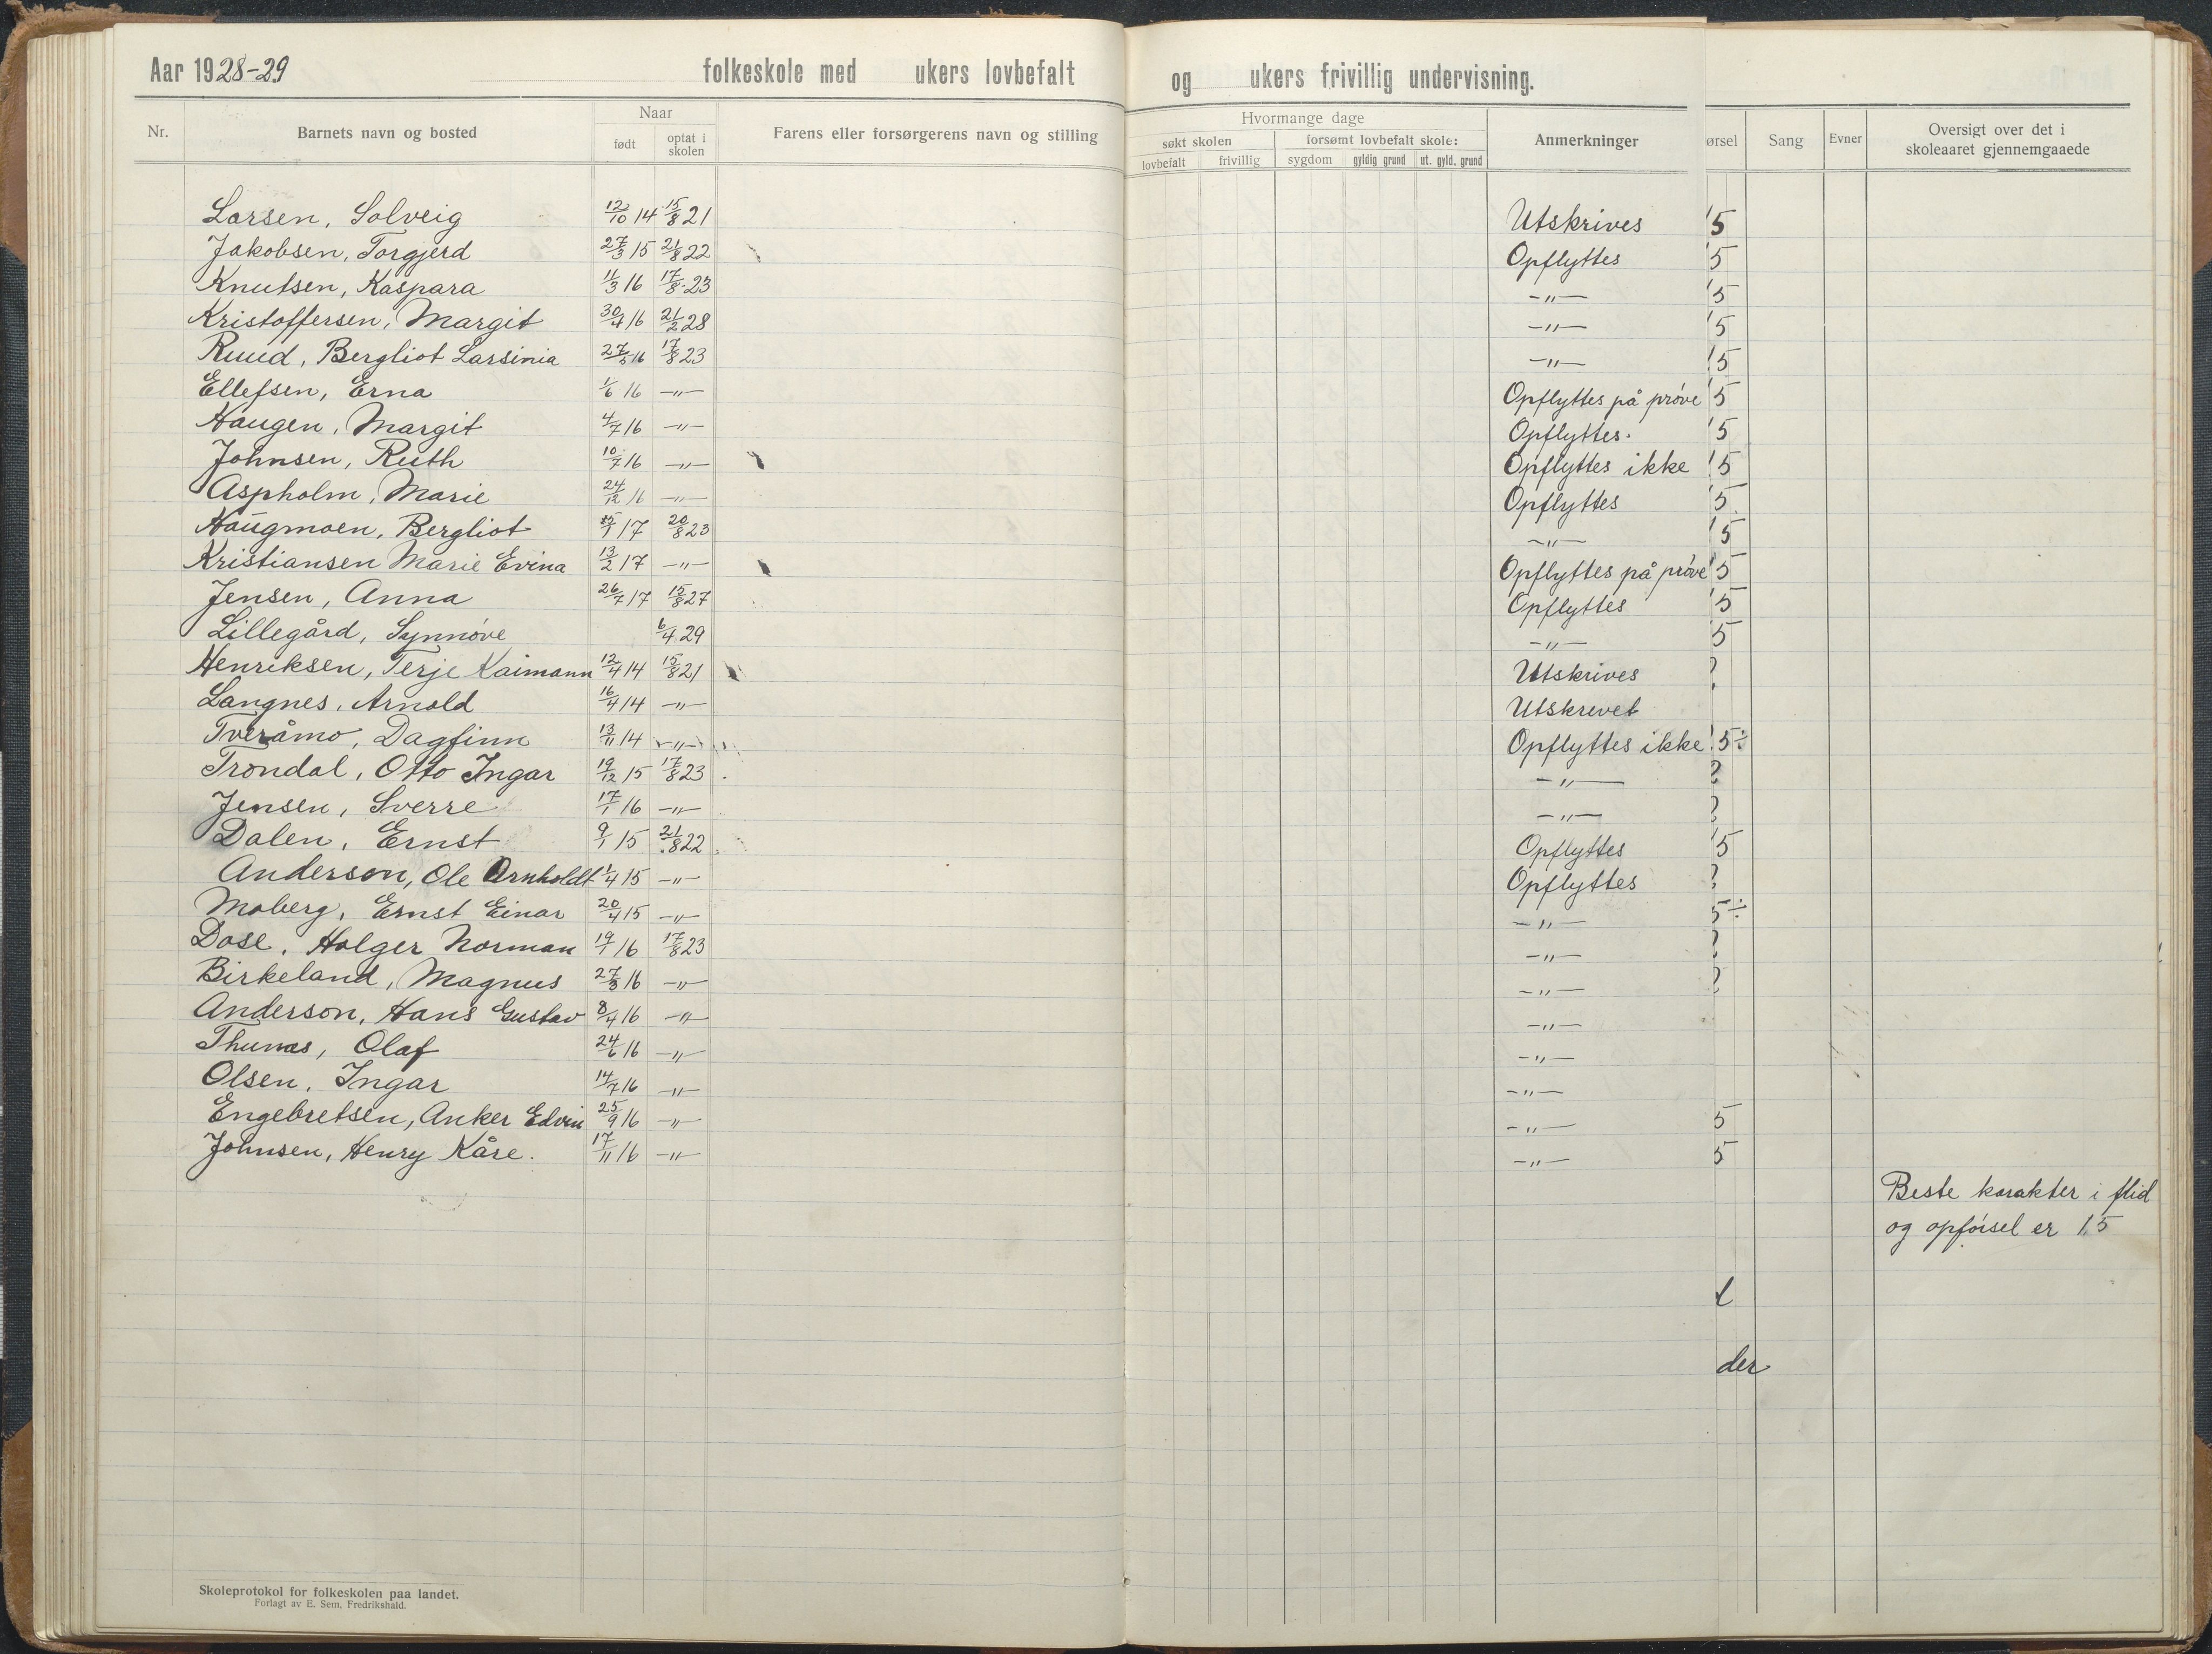 Aar 1928-29 folkeskole med ukers lovbefalt og ukers frivillig undervisning.
Nr. Barnets navn og bosted Naar født optat i skolen Farens eller forsørgerens navn og stilling Hvormange dage søkt skolen lovbefalt frivillig forsømt lovbefalt skole: sygdom gyldig grund ut. gyld. grund Anmerkninger ørsel Sang Evner Oversigt over det i skoleaaret gjennemgaaede
Larsen, Solveig 12/10 14 15/8 21 Utskrives 15
Jakobsen, Torgjerd 27/3 15 21/8 22 Opflyttes 15
Knutsen, Kaspara 11/3 16 17/8 23 -"- 15
Kristoffersen, Margit 30/4 16 21/2 28 -"- 15
Ruud, Bergliot Larsinia 27/5 16 17/8 23 -"- 15
Ellefsen, Erna 1/6 16 -"- Opflyttes på prøve 15
Haugen, Margit 4/7 16 -"- Opflyttes. 15
Johnsen, Ruth 10/7 16 -"- Opflyttes ikke 15
Aspholm, Marie 24/12 16 -"- Opflyttes 15
Haugmoen, Bergliot /1 17 20/8 23 -"- 15
Kristiansen Marie Evina 13/2 17 -"- Opflyttes på prøve 15
Jensen, Anna 26/7 17 15/8 27 Opflyttes 15
Lillegård, Synnøve 6/4 29 -"- 15
Henriksen, Terje Kaimann 12/4 14 15/8 21 Utskrives ?
Langnes, Arnold 16/4 14 -"- Utskrevet
Tveråmo, Dagfinn 13/11 14 -"- Opflyttes ikke 15÷
Trøndal, Otto Ingar 19/12 15 17/8 23 -"- ?
Jensen, Sverre 17/1 16 -"- -"- ?
Dalen, Ernst 9/1 15 21/8 22 Opflyttes 15
Anderson, Ole Arnholdt 1/4 15 -"- Opflyttes ?
Moberg, Ernst Einar 20/4 15 -"- -"- 5÷
Dase, Holger Norman 19/1 16 17/8 23 -"- ?
Birkeland, Magnus 27/3 16 -"- -"- ?
Anderson, Hans Gustav 8/4 16 -"- -"-
Thunæs, Olaf 24/6 16 -"- -"-
Olsen, Ingar 14/7 16 -"- -"-
Engebretsen, Anker Edvin 25/9 16 -"- -"- 5
Johnsen, Henry Kåre. 17/11 16 -"- -"- 5
Beste karakter i flid
og opførsel er 1,5
der
Skoleprotokol for folkeskolen paa landet.
Forlagt av E. Sem, Fredrikshald.